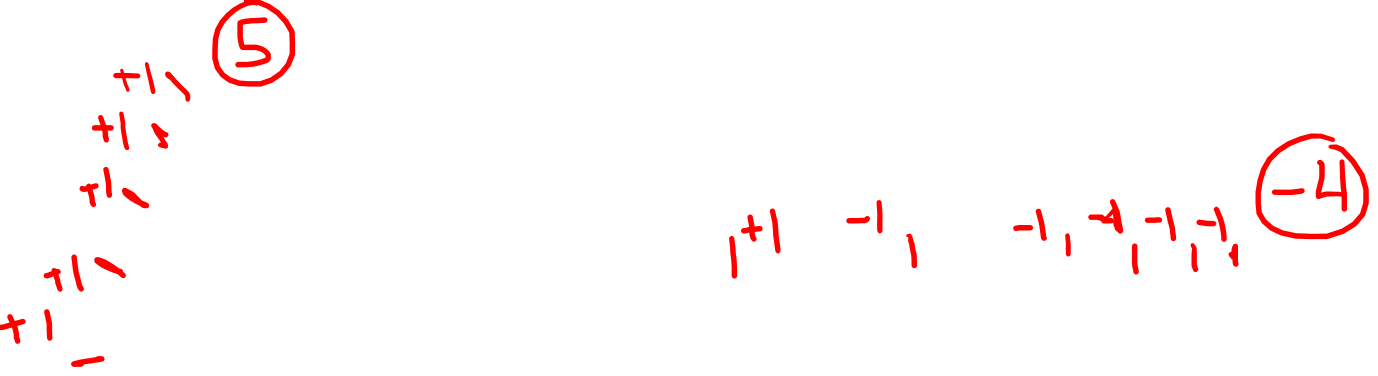 5
+1
+1
+1
+1
+1
+1 -1 -1 -1 -1 -1
-4